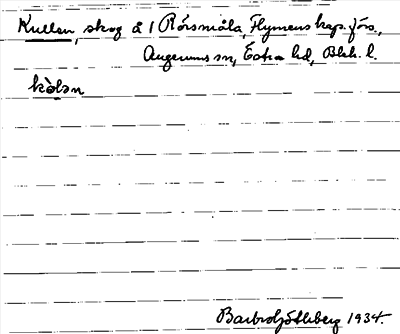 Kullen, skog å 1 Rörsmåla, Flymens kap. förs.,
Augerums sn, Östra hd, Blek. l.
kòlən
Barbro Götleberg 1934.